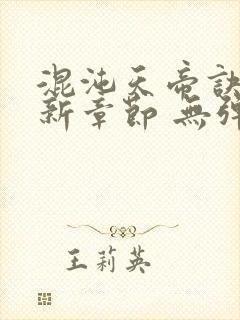 混沌天帝訣
新章節 無彈
王莉英